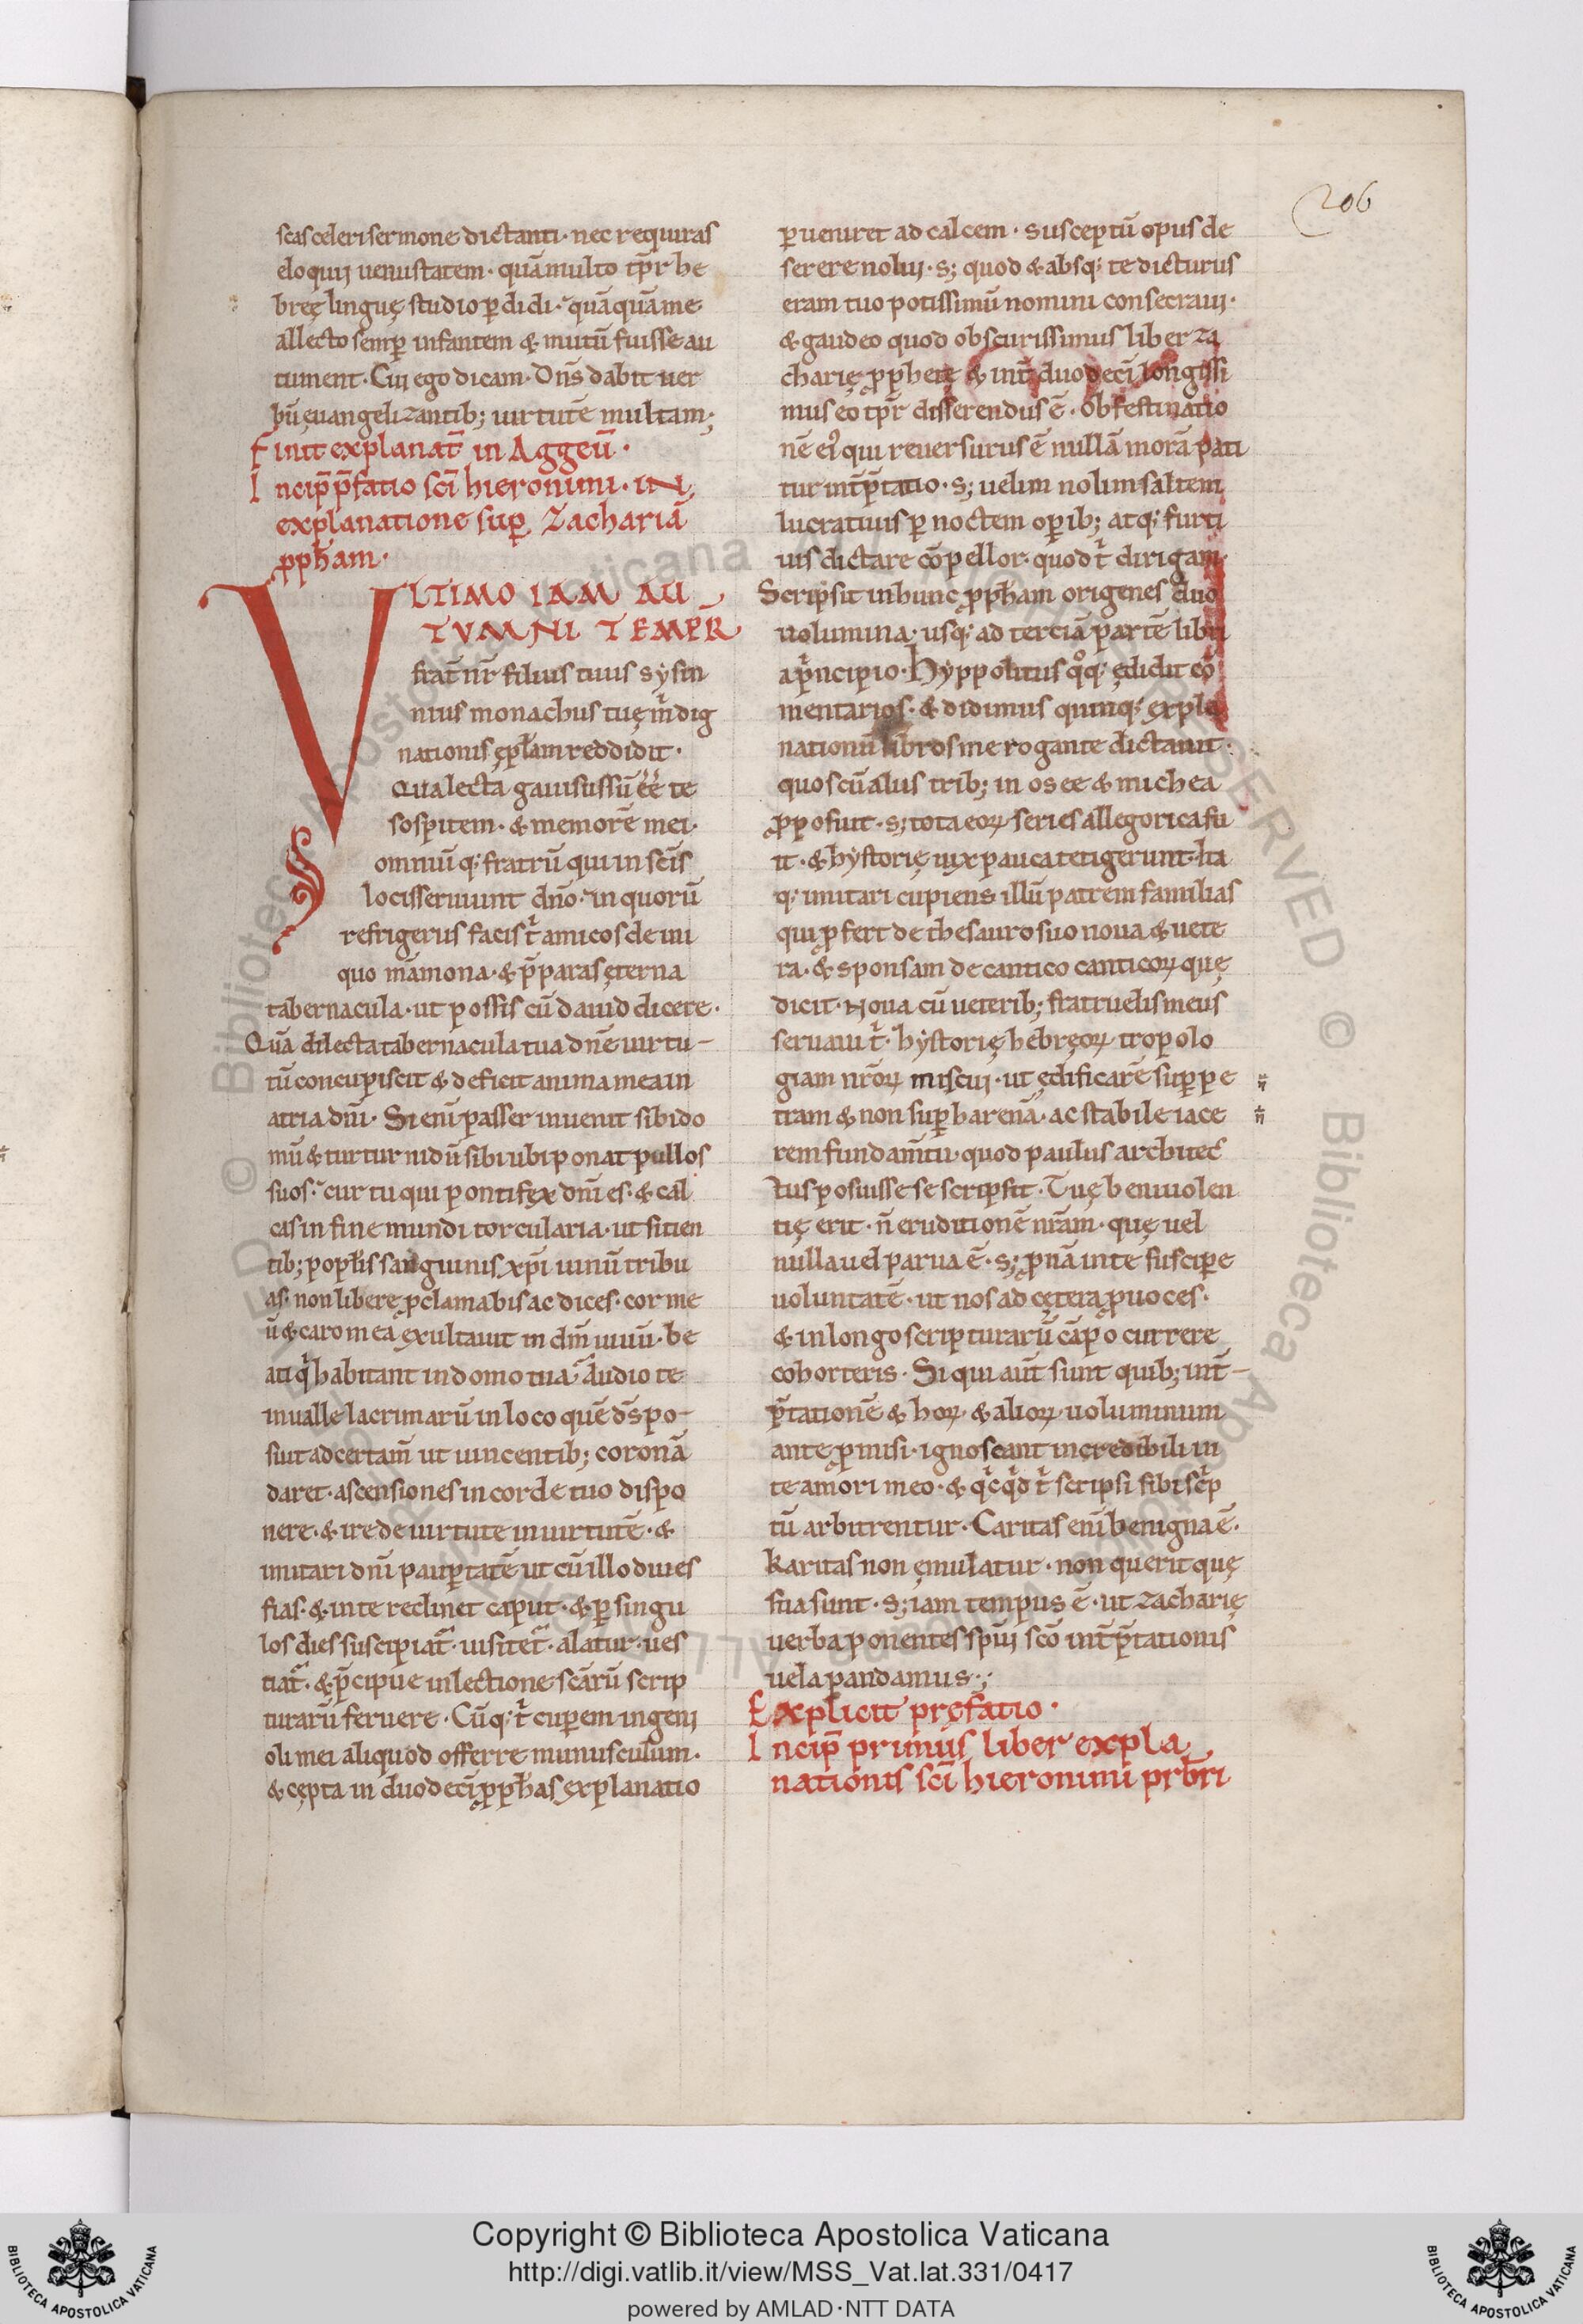 206
scas celeri sermone dictanti· nec requiras
eloquij uenustatem· quā multo tp̄r he
breę linguę studio ꝑdidi· quāquā me
allecto semꝑ infantem & mutū fuisse au
tument· Cui ego dicam· Dn̄s dabit uer
bū euangelizantib; uirtutē multam;
Finit explanat̄ in Aggeū·
Incip̄ p̄fatio sc̄i hieronimi· IN
explanatione suꝑ Zachariā
ꝓph̄am·
VLTIMO IAM AU
TVMNI TEMPR̄
frat̄ nr̄ filius tuus sysin
nius monachus tuę m̄ dig
nationis ępl̄am reddidit·
Qua lecta gauisus sū ēē te
sospitem· & memorē mei·
omniū q; fratrū qui in sc̄is
locis seruiunt dn̄o· in quorū
refrigeriis facis t̄ amicos de ini
quo māmona· & p̄paras ęterna
tabernacula· ut possis cū dauid dicere·
Quā dilecta tabernacula tua dn̄e uirtu–
tū concupiscit & deficit anima mea in
atria dn̄i· Si eni̅ passer inuenit sibi do
mū & turtur nidū sibi ubi ponat pullos
suos· cur tu qui pontifex dn̄i es· & cal
cas in fine mundi torcularia· ut sitien
tib; popl̄is sanguinis xp̄i uinū tribu
as· non libere ꝓclamabis ac dices· cor me
ū & caro mea exultauit in dm̄ uiuū· be
ati q̄ habitant in domo tua· Audio te
in ualle lacrimarū in loco quē dſ̄ po–
suit ad certam̄ ut uincentib; coronā
daret· ascensiones in corde tuo dispo
nere· & ire de uirtute in uirtutē· &
imitari dn̄i pauꝑtatē ut cū illo diues
fias· & in te reclinet caput· & ꝑ singu
los dies suscipiat̄· uisitet̄· alatur· ues
tiat̄· & p̄cipue in lectione scārū scrip
turarū feruere· Cūq; t̄ cuperem ingeni
oli mei aliquod offerre munusculum·
& cępta in duodeci̅ ꝓph̄as explanatio
ꝑueniret ad calcem· susceptū opus de
serere nolui· s; quod & absq; te dicturus
eram tuo potissimū nomini consecraui·
& gaudeo quod obscurissimus liber za
charię ꝓphetę & int̄ duodeci̅ longissi
mus eo tp̄r disserendus ē· Ob festinatio
nē ei᾽ qui reuersurus ē nullā morā pati
tur int̄p̄tatio· s; uelim nolim saltem
lucratiuis ꝑ noctem oꝑib; atq; furti
uis dictare cōpellor· quod t̄ dirigam·
Scripsit in hunc ꝓph̄am origenes duo
uolumina· usq; ad terciā partē libri
a p̄ncipio· Hyppolitus q̊q; ędidit cō
mentarios· & didimus quinq; expla
nationū libros me rogante dictauit·
quos cū aliis trib; in osee & michea
ꝓposuit· s; tota eoꝝ series allegorica fu
it· & hystorię uix pauca tetigerunt· Ita
q; imitari cupiens illū patrem familias
qui ꝓfert de thesauro suo noua & uete
ra· & sponsam de cantico canticoꝝ quę
dicit· Noua cū ueterib; fratruelis meus
seruaui t̄· hystorię hebręoꝝ tropolo
giam nr̄oꝝ miscui· ut ędificarē suꝑ pe
tram & non suꝑ harenā· ac stabile iace
rem fundam̄tū· quod paulus architec̄
tus posuisse se scripsit· Tuę beniuolen
tię erit· n̄ eruditionē nr̄am· quę uel
nulla uel parua ē· s; ꝓnā in te suscipe
uoluntatē· ut nos ad cętera ꝓuoces·
& in longo scripturarū cāpo currere
cohorteris· Si qui aut̄ sunt quib; int̄–
p̄tationē & hoꝝ & alioꝝ uoluminum
ante ꝓmisi· ignoscant incredibili in
te amori meo· & qͥcqͥd t̄ scripsi sibi scͥp
tū arbitrentur· Caritas eni̅ benigna ē·
karitas non ęmulatur· non querit quę
sua sunt· s; iam tempus ē· ut zacharię
uerba ponentes spū sc̄o int̄p̄tationis
uela pandamus·;
Explicit prefatio·
Incip̄ primus liber expla
nationis sc̄i hieronimi prb̄ri
Copyright © Biblioteca Apostolica Vaticana
http://digi.vatlib.it/view/MSS_Vat.lat.331/0417
powered by AMLAD·NTT DATA
BIBLIOTECA APOSTOLICA VATICANA
BIBLIOTECA APOSTOLICA VATICANA